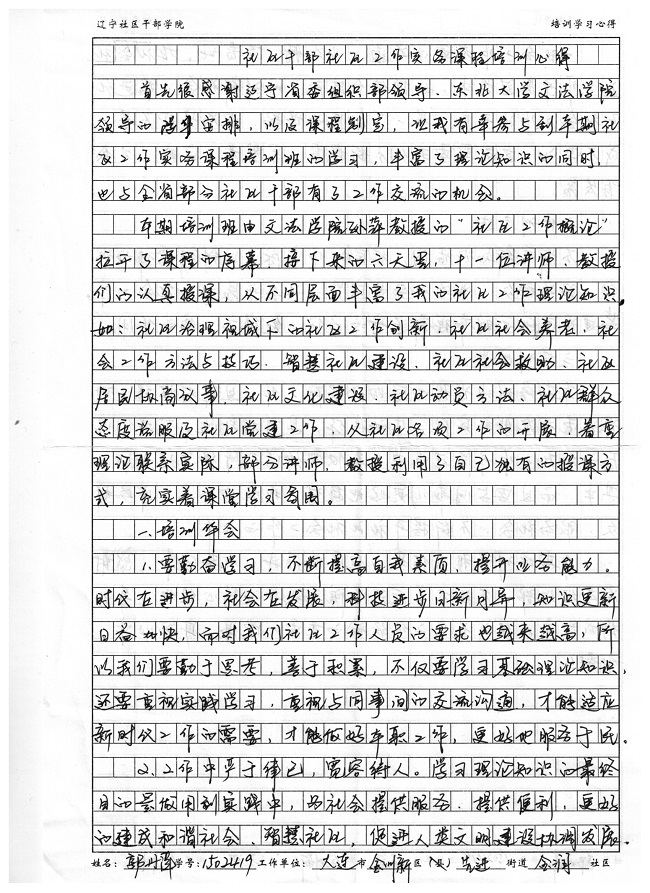 辽宁社区干部学院 培训学习心得
社区干部社区工作实务课程培训心得
首先很感谢辽宁省委组织部领导、东北大学文法学院
领导的 安排，以及课程制定，让我有幸参与到本期社
区工作实务课程培训班的学习，丰富了理论知识的同时，
也与全省部分社区干部有了工作交流的机会。
本期培训班由文法学院孙萍教授的“社区工作概论”
拉开了课程的序幕，接下来的六天里，十一位讲师、教授
们的认真授课，从不同层面丰富了我的社区工作理论知识。
如：社区治理视域下的社区工作创新、社区社会养老、社
会工作方法与技巧、智慧社区建设、社区社会救助、社区
居民协商议事、社区文化建设、社区动员方法、社区群众
态度 服及社区党建工作，从社区各项工作的开展，着重
理论联系实际，部分讲师、教授利用了自己独有的授课方
式，充实着课堂学习氛围。
一、培训体会
1、要勤奋学习，不断提高自我素质，提升业务能力。
时代在进步，社会在发展，科技进步日新月异，知识更新
日益加快，而对我们社区工作人员的要求也越来越高，所
以我们要勤于思考，善于积累，不仅要学习基础理论知识，
还要重视实践学习，重视与同事间的交流沟通，才能适应
新时代工作的需要，才能做好本职工作，更好地服务于民。
2、工作中严于律己，宽容待人。学习理论知识的最终
目的是做用到实践中，为社会提供服务、提供便利，更好
的建设和谐社会、智慧社区，促进人类文明建设协调发展。
姓名： 郭 学号：1502419 工作单位： 大连 市 金州新 区（县） 先进 街道 金润 社区